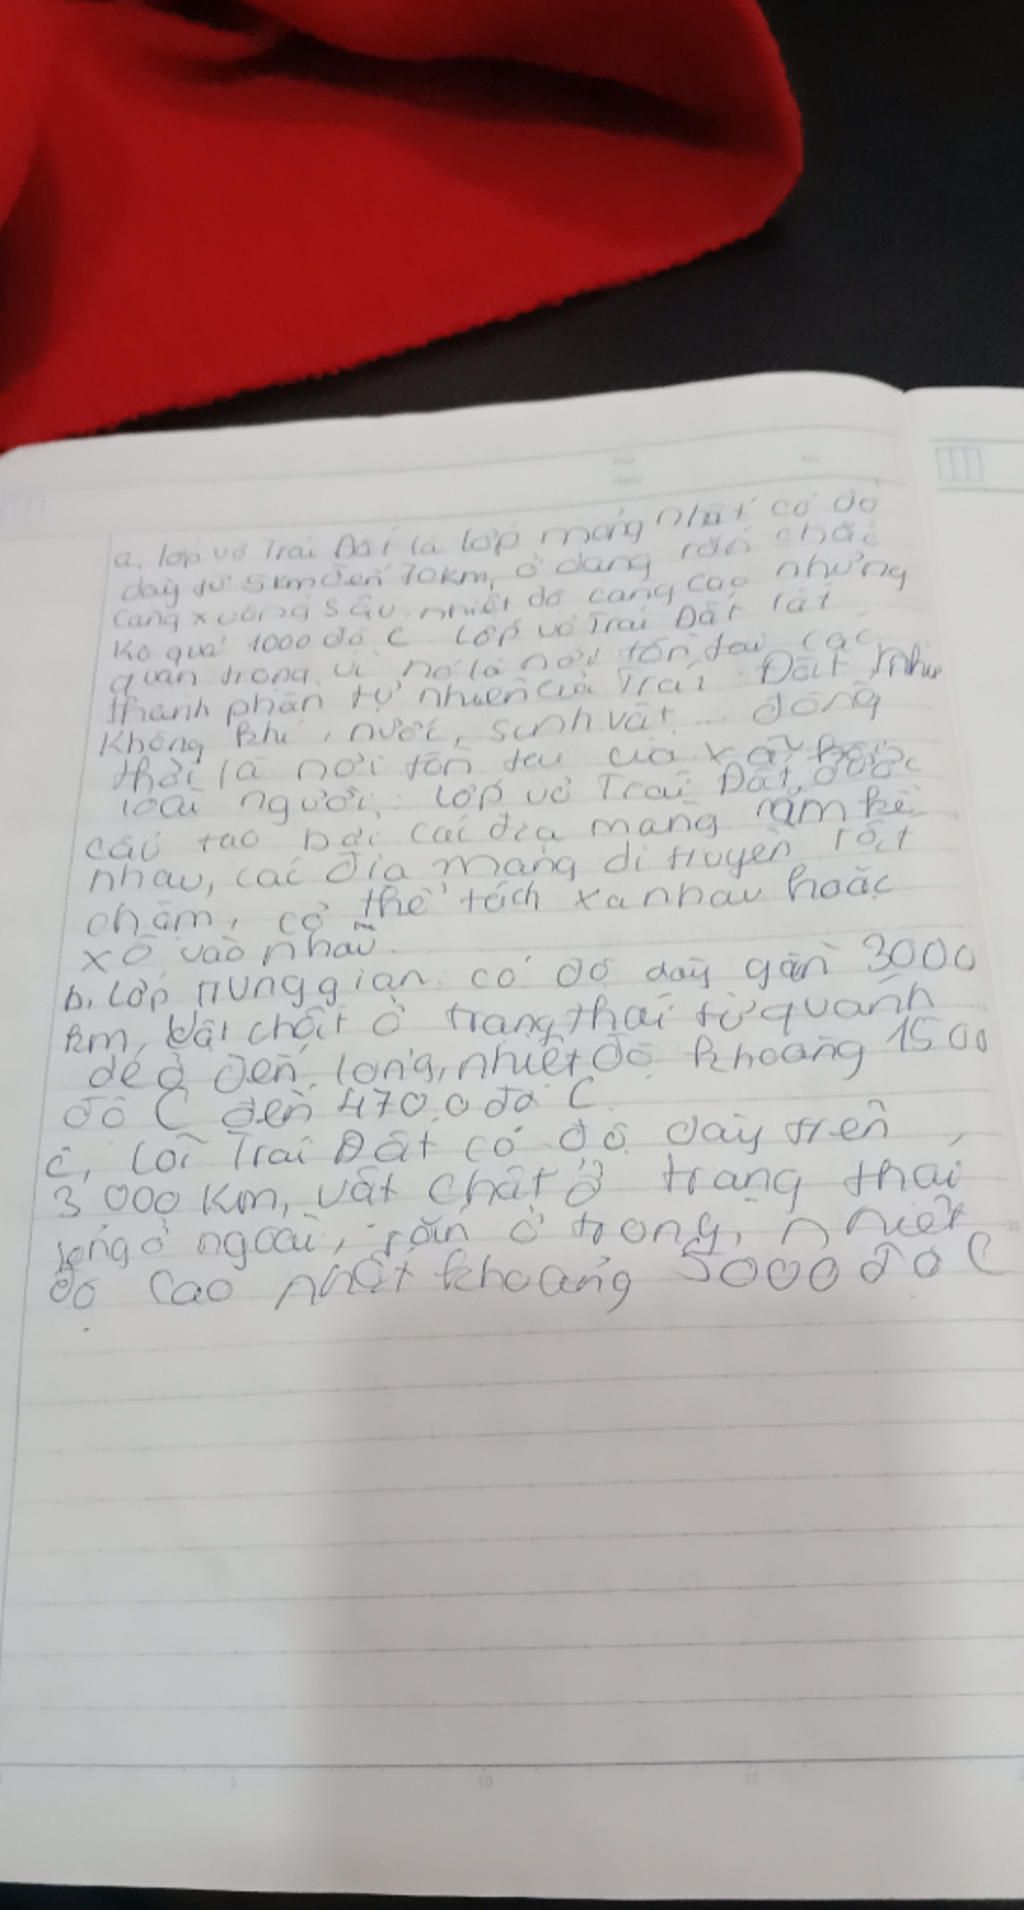 a, lớp vỏ Trái Đất là lớp mỏng nhất có độ
dày từ 5km đến 70km, ở dạng rắn chắc
càng xuống sâu nhiệt độ càng cao nhưng
ko quá 1000 độ C. Lớp vỏ Trái Đất rất
quan trọng vì nó là nơi tồn tại các
thành phần tự nhiên của Trái Đất như
không khí, nước, sinh vật... đồng
thời là nơi tồn tại của xã hội
loài người. Lớp vỏ Trái Đất được
cấu tạo bởi các địa mảng nằm kề
nhau, các địa mảng di truyển rất
chậm, có thể tách xa nhau hoặc
xô vào nhau.
b, Lớp trung gian có độ dày gần 3000
km, vật chất ở trạng thái từ quánh
dẻo đến lỏng, nhiệt độ khoảng 1500
độ C đến 4700 độ C.
c, Lõi Trái Đất có độ dày trên
3000 km, vật chất ở trạng thái
lỏng ở ngoài, rắn ở trong, nhiệt
độ cao nhất khoảng 5000 độ C
5 10